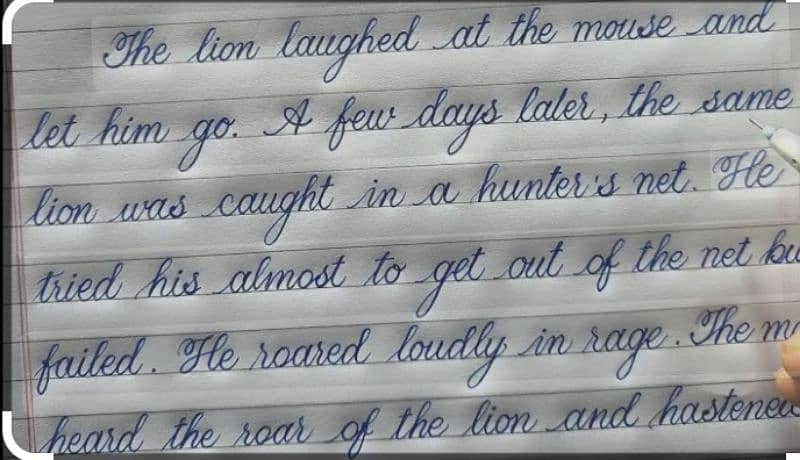 The lion laughed at the mouse and
let him go. A few days later, the same
lion was caught in a hunter's net. He
tried his almost to get out of the net bu
failed. He roared loudly in rage. The m
heard the roar of the lion and hastened